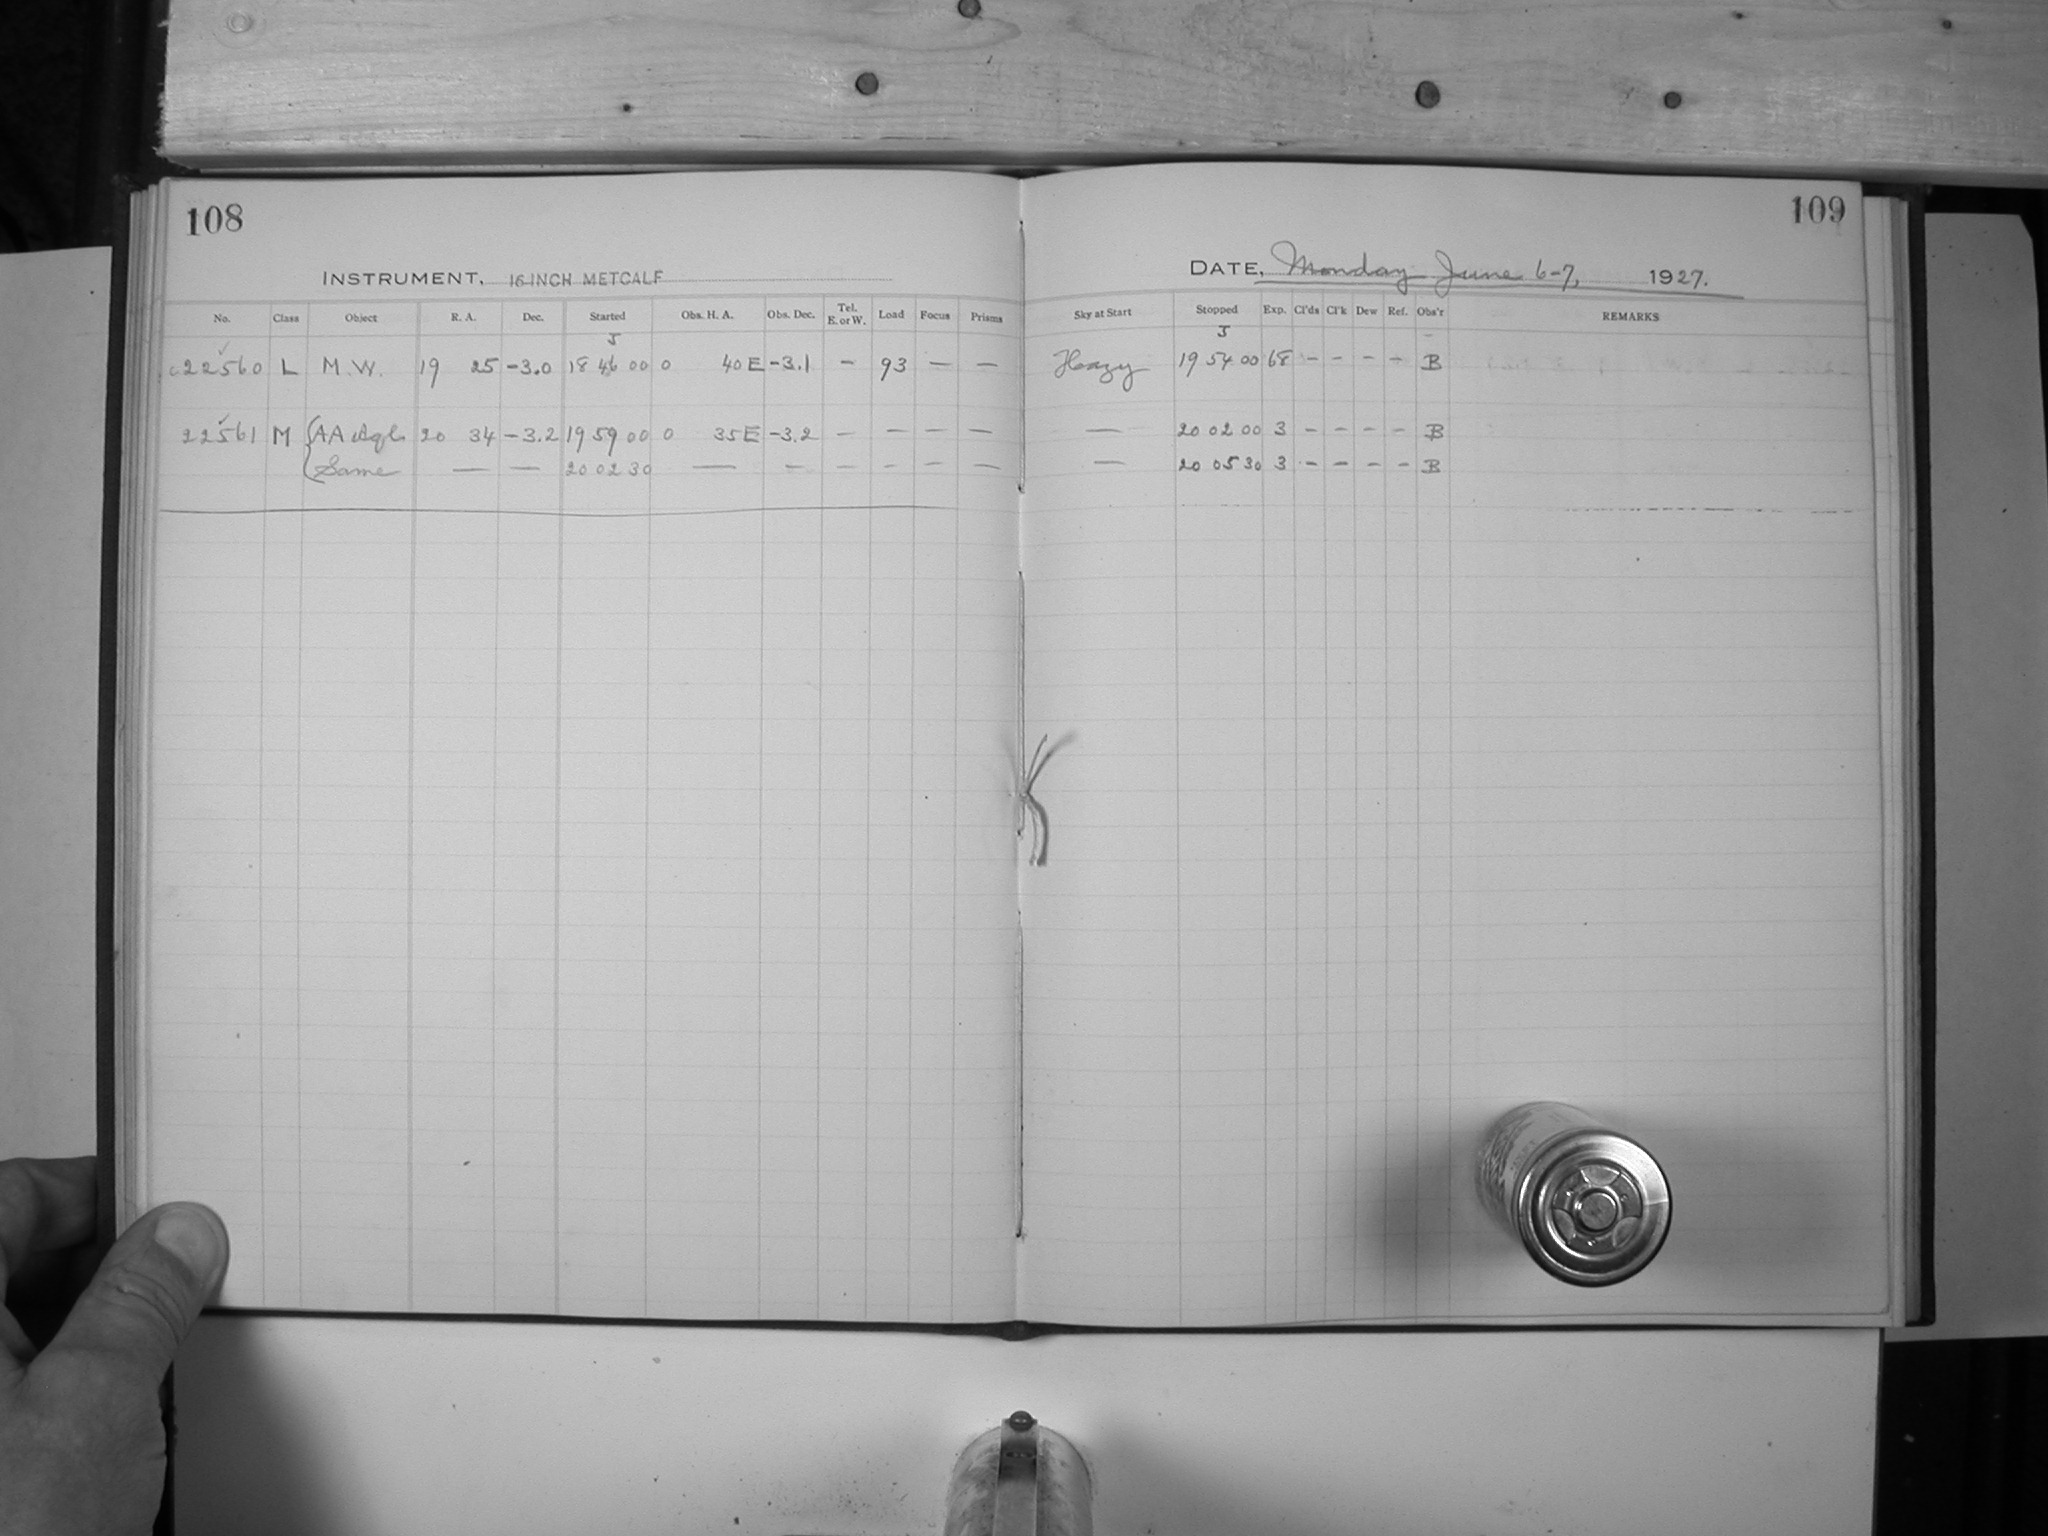 108
INSTRUMENT, 16-INCH METCALF
No. Class Object R. A. Dec. Started Obs. H. A. Obs. Dec. Tel. E. or W. Load Focus Prisms
J
22560 L M.W. 19 25 -3.0 18 46 00 0 40 E -3.1 — 93 — —
22561 M {AA Aql. 20 34 -3.2 19 59 00 0 35 E -3.2 — — — —
{Same — — 20 02 30 — — — — — —
109
DATE, Monday June 6-7, 1927.
Sky at Start Stopped Exp. Cl'ds Cl'k Dew Ref. Obs'r REMARKS
J
Hazy 19 54 00 68 — — — — B
— 20 02 00 3 — — — — B
— 20 05 30 3 — — — — B